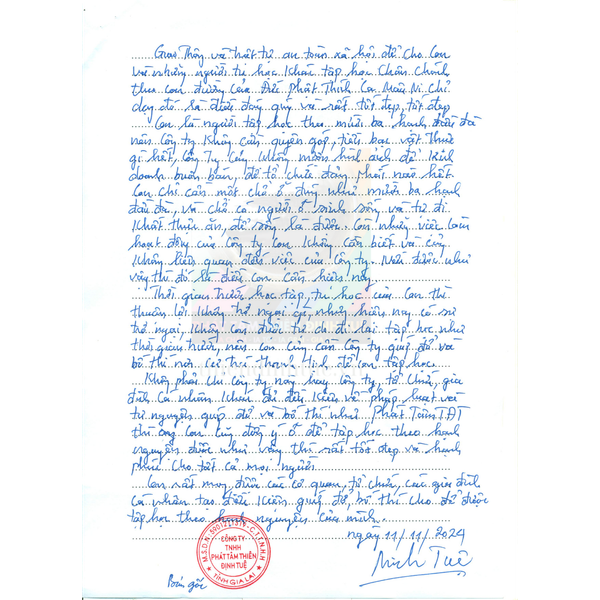 Giao Thông và trật tự an toàn xã hội để cho Con
và những người tự học khác tập học chân chính
theo con đường của Đức Phật Thích Ca Mâu Ni chỉ
dạy đó là điều đáng quý và rất tốt đẹp, tốt đẹp
Con là người tập học theo mười ba hạnh đầu đà
nên Công ty không cần quyên góp, tiền bạc vật thực
gì hết, Công Ty cũng không mượn hình ảnh để kinh
doanh buôn bán, để tổ chức đảng phái nào hết
Con chỉ cần một chỗ ở đúng như mười ba hạnh
đầu đà, và chỗ có người ở sinh sống và từ đi
khất thực ăn, để sống là được. Còn những việc làm
hoạt động của công ty con không cần biết và cũng
không liên quan đến việc của công ty. Nếu được như
vậy thì đó là điều con cần hiện nay
Thời gian trước học tập, tự học của Con thì
thuận lợi không trở ngại gì, nhưng hiện nay có sự
trở ngại, không còn được tự do đi lại tập học như
thời gian trước, nên con cũng cần công ty giúp đỡ và
bố thí nơi cư trú thanh tịnh để con tập học
Không phải chỉ công ty này hay công ty, tổ chức, gia
đình cá nhân khác đủ điều kiện về pháp luật và
tự nguyện giúp đỡ và bố thí như Phật Tâm TĐT
thì ông con cũng đồng ý ở để tập học theo hạnh
nguyện được như vậy thì rất tốt đẹp và hạnh
phúc cho tất cả mọi người
Con rất mong được các cơ quan, tổ chức, các gia đình
cá nhân tạo điều kiện giúp đỡ, bố thí cho để được
tập học theo hạnh nguyện của mình.
ngày 11/11/2024
Minh Tuệ
CÔNG TY
TNHH
PHÁT TÂM THIỀN
ĐỊNH TUỆ
TỈNH GIA LAI
Bản gốc